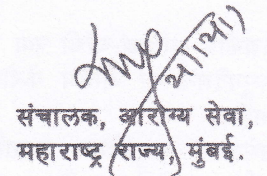 संचालक, आरोग्य सेवा,
महाराष्ट्र राज्य, मुंबई.